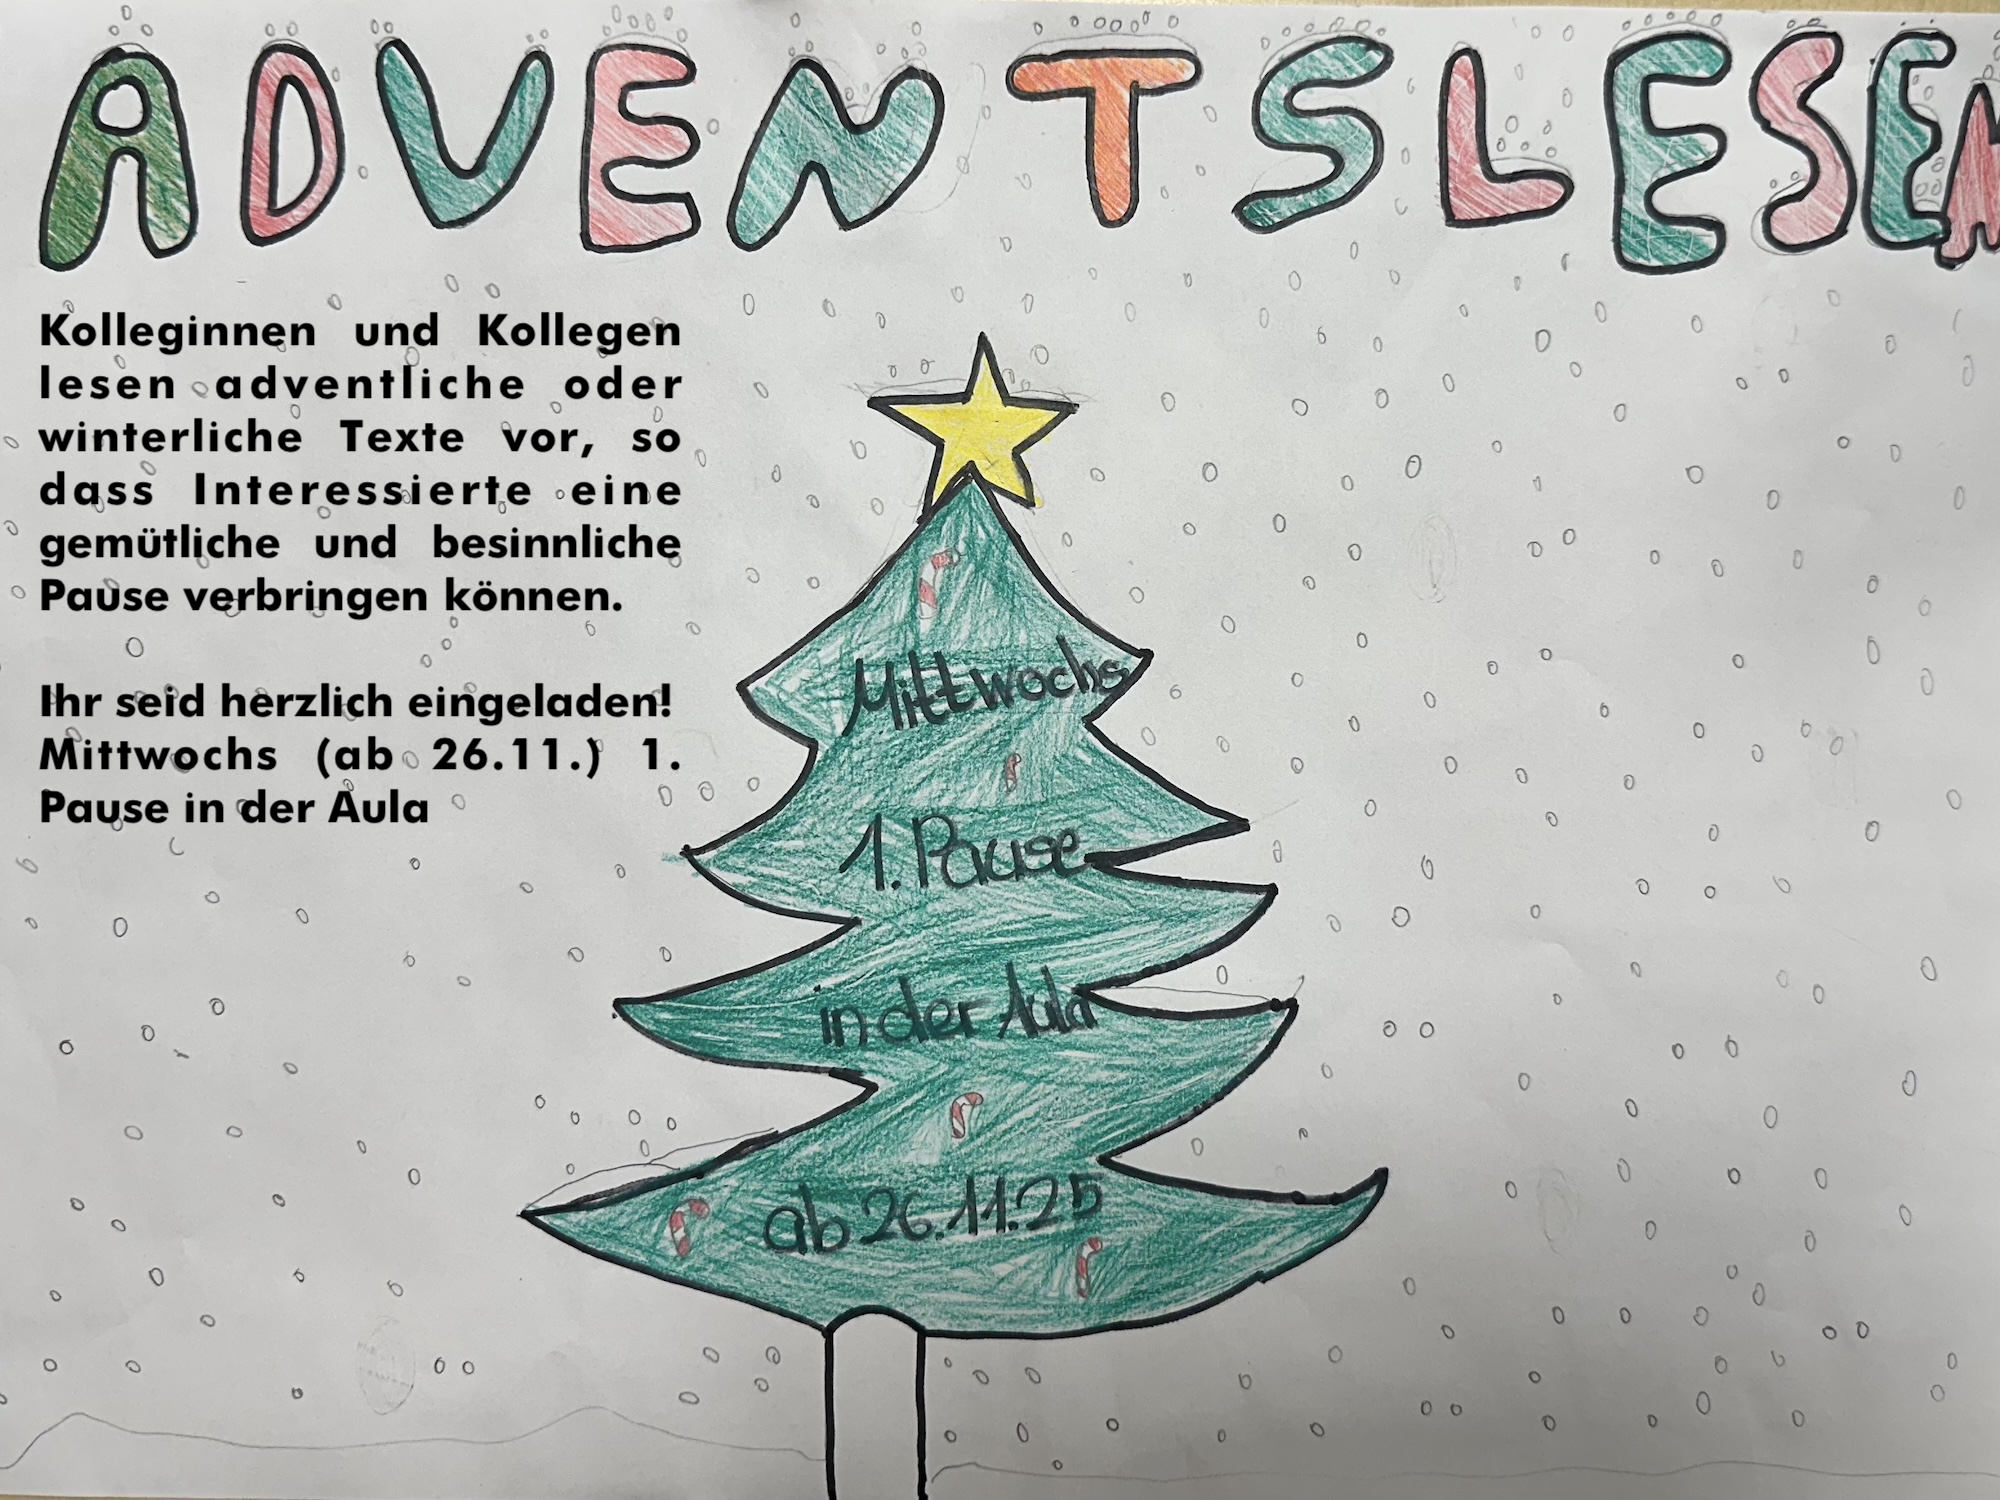 ADVENTSLESEN
Kolleginnen und Kollegen
lesen adventliche oder
winterliche Texte vor, so
dass Interessierte eine
gemütliche und besinnliche
Pause verbringen können.
Ihr seid herzlich eingeladen!
Mittwochs (ab 26.11.) 1.
Pause in der Aula
Mittwochs
1. Pause
in der Aula
ab 26.11.25